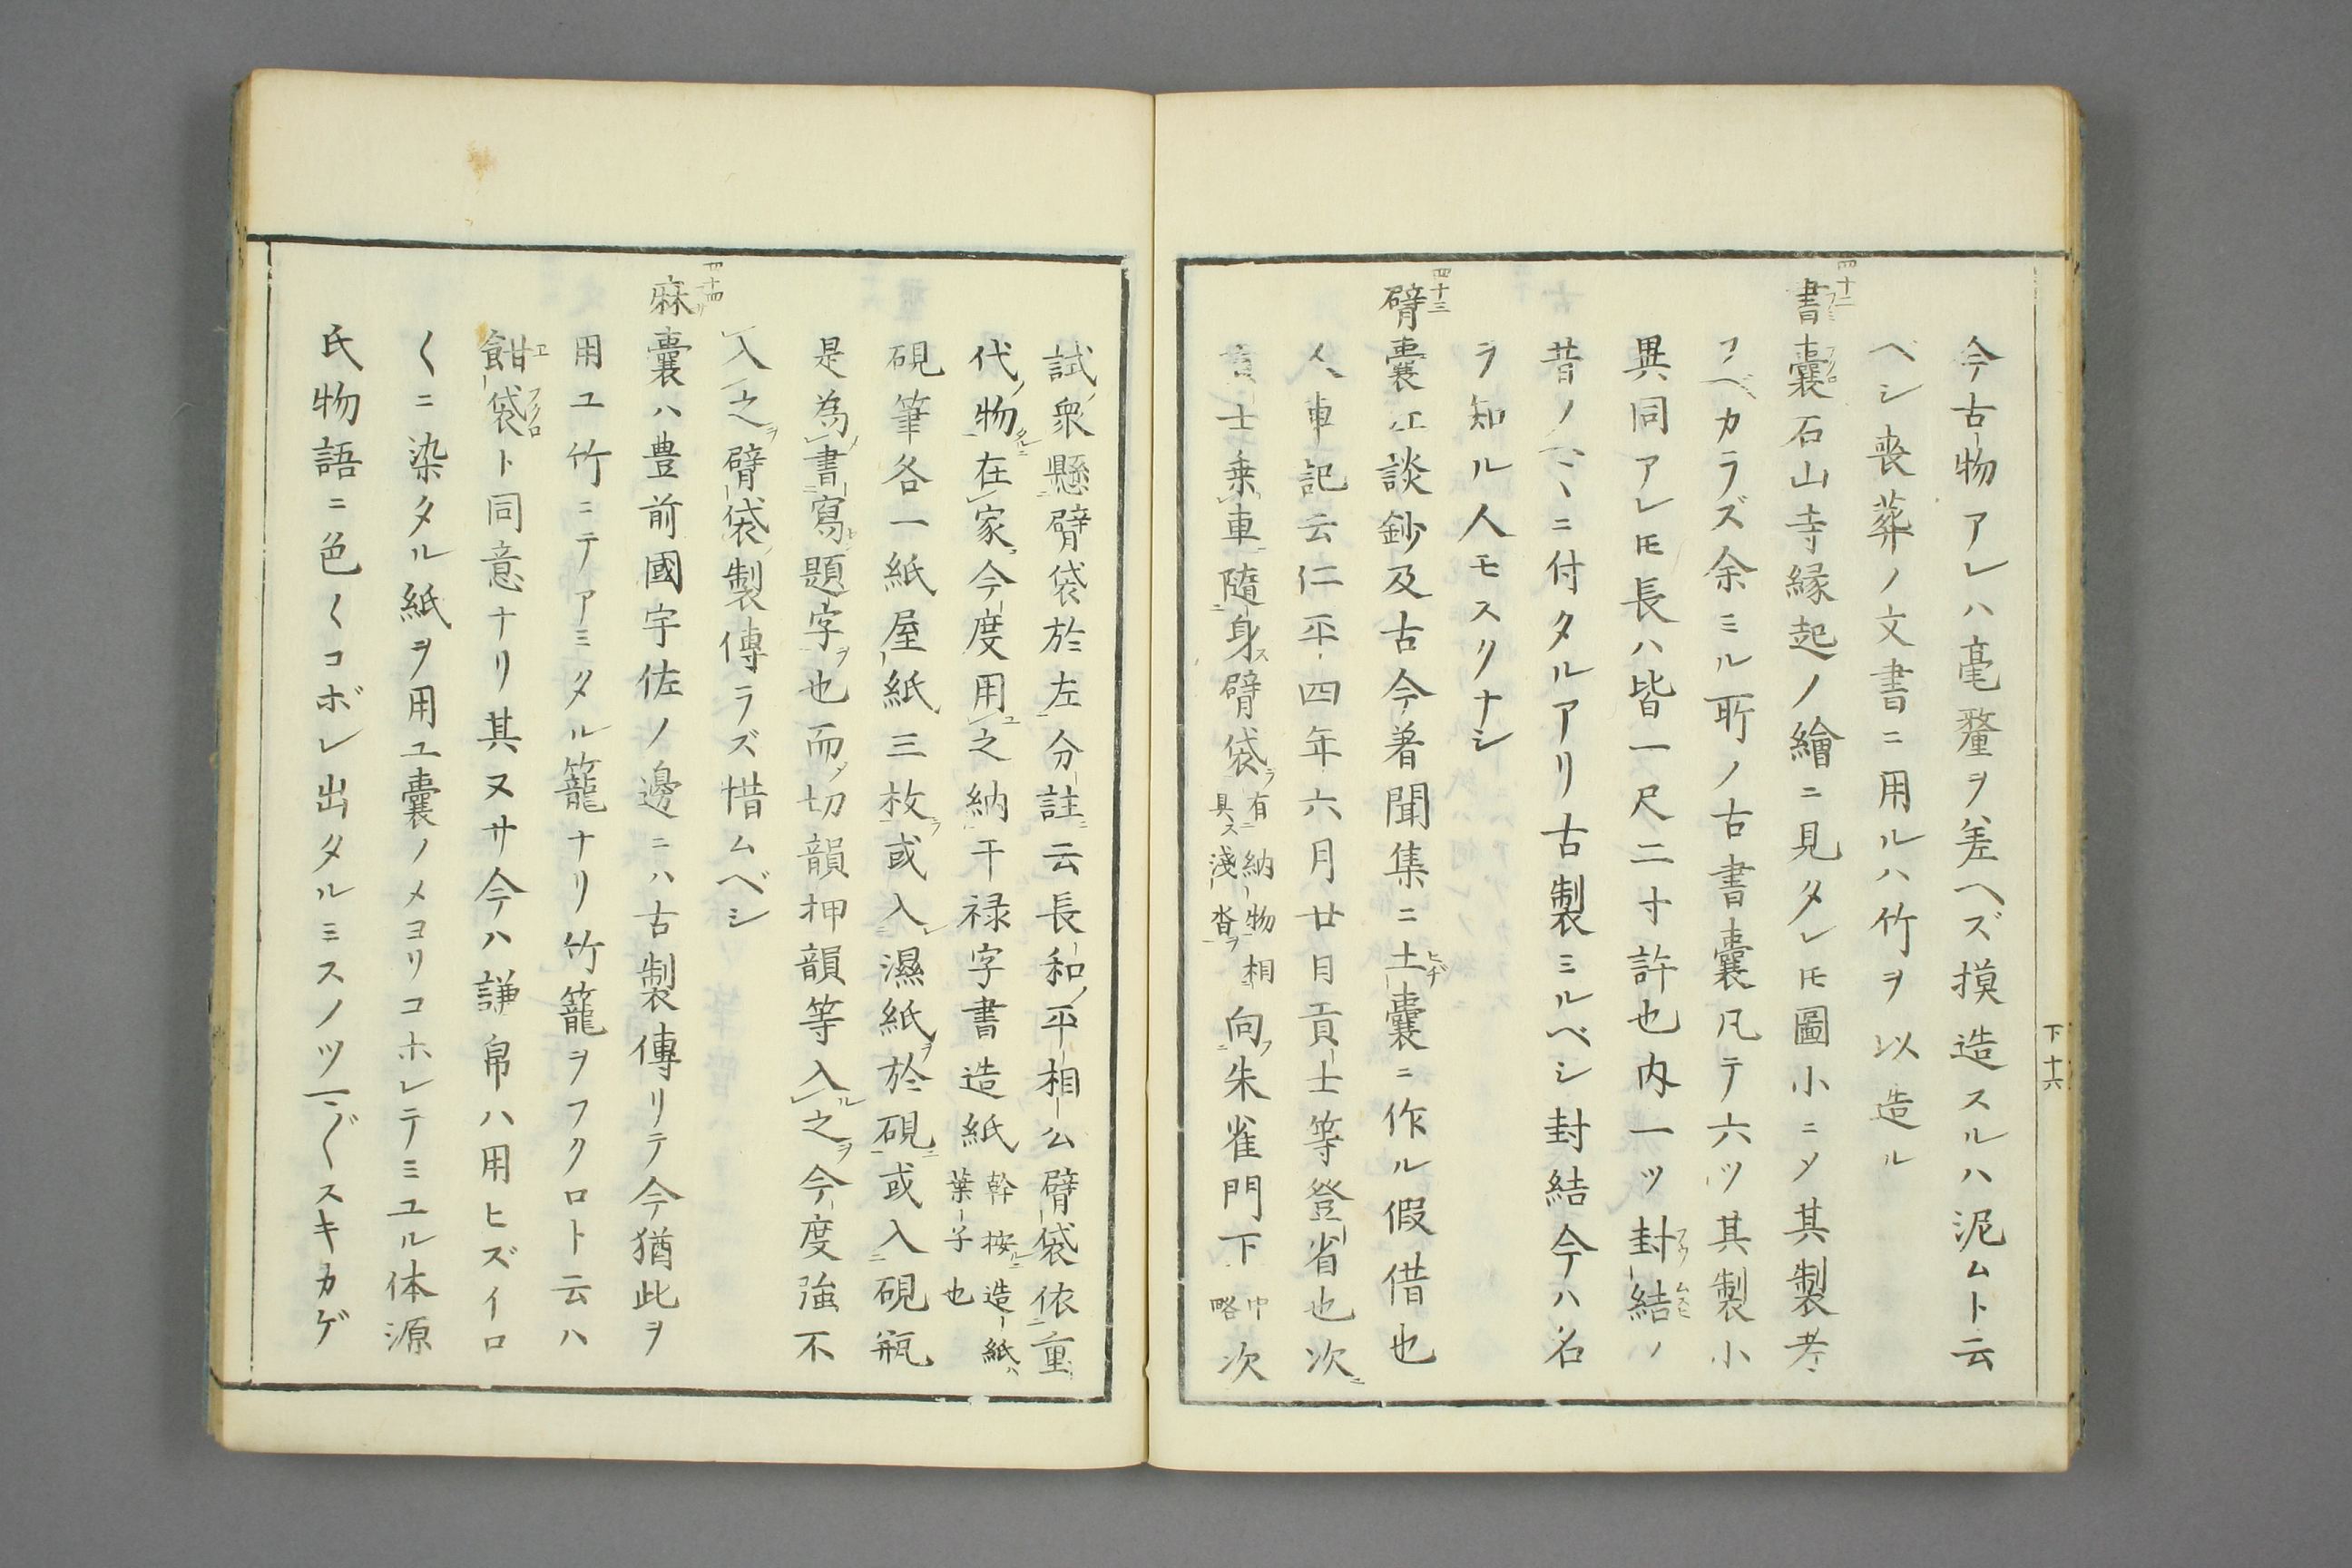 今古物アレハ毫釐ヲ差ヘズ摸造スルハ泥ムト云
ベシ喪葬ノ文書ニ用ルハ竹ヲ以造ル
四十二
書嚢石山寺縁起ノ繪ニ見タレ𪜈圖小ニメ其製考
フベカラズ余ミル所ノ古書嚢凡テ六ツ其製小
異同アレ𪜈長ハ皆一尺二寸許也内一ツ封結ノ
昔ノマヽニ付タルアリ古製ミルベシ封結今ハ名
ラ知ル人モスクナシ
四十三
臂嚢江談鈔及古今著聞集ニ土嚢ニ作ル假借也
人車記云仁平四年六月廿日貢士等登省也次
貢士乗車隨身臂袋
有納物相
具淺沓
向朱雀門下
中略
次
下十六
試衆懸臂袋於左分註云長和平相公臂袋依重
代物在家今度用之納干禄字書造紙
幹按造紙ハ
葉子也
硯筆各一紙屋紙三枚或入濕紙於硯或入硯瓶
是為書寫題字也而切韻押韻等入之今度強不
入之臂袋製傳ラズ惜ムベシ
四十四
麻嚢ハ豊前國宇佐ノ邊ニハ古製傳リテ今猶此ヲ
用ユ竹ニテアミタル籠ナリ竹籠ヲフクロト云ハ
餌袋ト同意ナリ其ヌサ今ハ謙帛ハ用ヒズイロ
〱ニ染タル紙ヲ用ユ嚢ノメヨリコホレテミユル体源
氏物語ニ色〱コボレ出タルミスノツマ〲スキカゲ